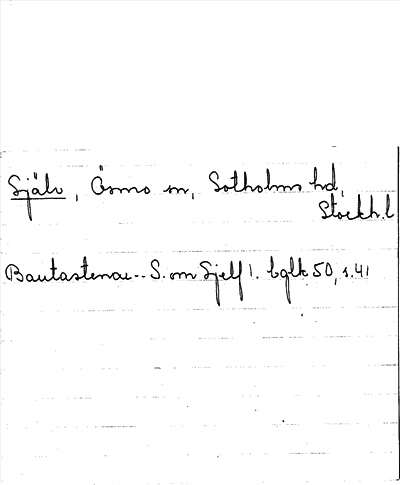 Själv, Ösmo sn, Sotholms hd,
Stockh. l
Bautastenar -- S. om Sjelf l. bglt 50, s. 41